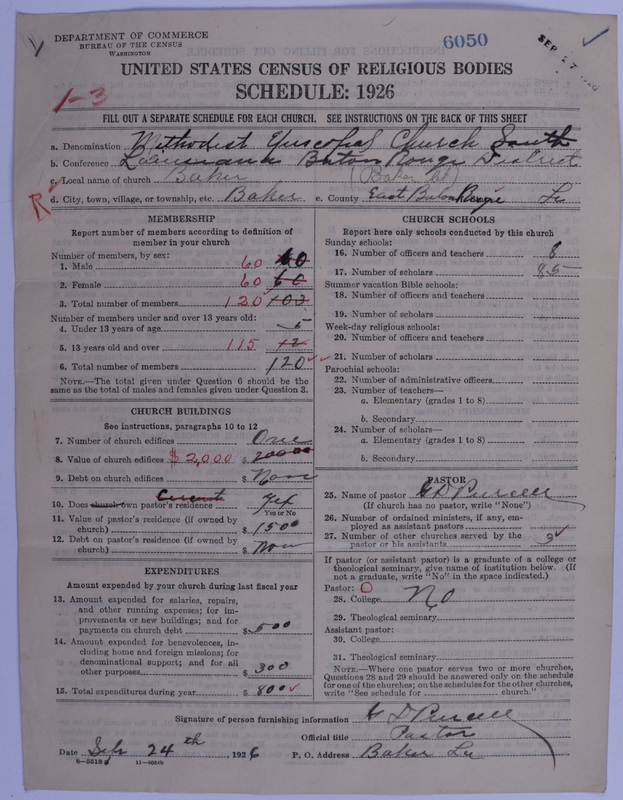 DEPARTMENT OF COMMERCE
BUREAU OF THE CENSUS
WASHINGTON
6050
SEP 27
UNITED STATES CENSUS OF RELIGIOUS BODIES
SCHEDULE: 1926
1-3
FILL OUT A SEPARATE SCHEDULE FOR EACH CHURCH. SEE INSTRUCTIONS ON THE BACK OF THIS SHEET
a. Denomination Methodist Episcopal Church South
b. Conference Louisiana Baton Rouge District
c. Local name of church Baker (Baker Ch)
R d. City, town, village, or township, etc. Baker e. County East Baton Rouge La
MEMBERSHIP
Report number of members according to definition of
member in your church
Number of members, by sex:
1. Male 60 60
2. Female 60 60
3. Total number of members 120 103
Number of members under and over 13 years old:
4. Under 13 years of age 5
5. 13 years old and over 115 12
6. Total number of members 120
NOTE.—The total given under Question 6 should be the
same as the total of males and females given under Question 3.
CHURCH BUILDINGS
See instructions, paragraphs 10 to 12
7. Number of church edifices One
8. Value of church edifices $2,000 $ 2000 00
9. Debt on church edifices $ None
Circuit
10. Does church own pastor's residence Yes
Yes or No
11. Value of pastor's residence (if owned by
church) $ 1500
12. Debt on pastor's residence (if owned by
church) $ None
EXPENDITURES
Amount expended by your church during last fiscal year
13. Amount expended for salaries, repairs,
and other running expenses; for im-
provements or new buildings; and for
payments on church debt $ 500
14. Amount expended for benevolences, in-
cluding home and foreign missions; for
denominational support; and for all
other purposes $ 300
15. Total expenditures during year $ 800
CHURCH SCHOOLS
Report here only schools conducted by this church
Sunday schools:
16. Number of officers and teachers 8
17. Number of scholars 85
Summer vacation Bible schools:
18. Number of officers and teachers
19. Number of scholars
Week-day religious schools:
20. Number of officers and teachers
21. Number of scholars
Parochial schools:
22. Number of administrative officers
23. Number of teachers—
a. Elementary (grades 1 to 8)
b. Secondary
24. Number of scholars—
a. Elementary (grades 1 to 8)
b. Secondary
PASTOR
25. Name of pastor H D Purcell
(If church has no pastor, write "None")
26. Number of ordained ministers, if any, em-
ployed as assistant pastors
27. Number of other churches served by the
pastor or his assistants 3
If pastor (or assistant pastor) is a graduate of a college or
theological seminary, give name of institution below. (If
not a graduate, write "No" in the space indicated.)
Pastor: O
28. College No
29. Theological seminary
Assistant pastor:
30. College
31. Theological seminary
NOTE.—Where one pastor serves two or more churches,
Questions 28 and 29 should be answered only on the schedule
for one of the churches; on the schedules for the other churches,
write "See schedule for church."
Signature of person furnishing information H D Purcell
Official title Pastor
Date Sep 24th, 1926 P. O. Address Baker La